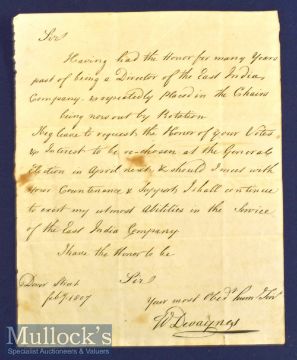 Sir
Having had the Honor for many Years
past of being a Director of the East India
Company & repeatedly placed in the Chairs
being now out by Rotation
I beg leave to request the Honor of your Votes
& Interest to be re-chosen at the General
Election in April next & should I meet with
Your Countenance & Support I shall continue
to exert my utmost Abilities in the Service
of the East India Company
I have the Honor to be
Sir
Dover Street
1807
Your most Obedt. hum. Ser
W. Devaynes
Mullock's
Specialist Auctioneers & Valuers